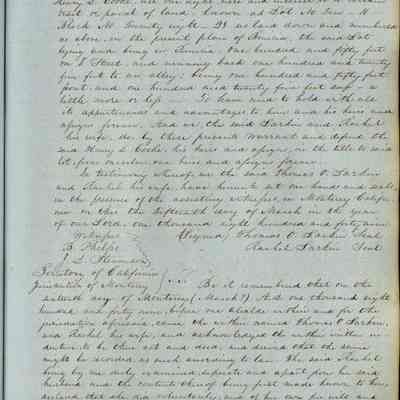 Henry S. Cooke, all our right title and interest in a certain
tract or parcel of land, known as Lot No. Two - 2
Block No. Twenty eight - 28 as laid down and numbered
as above, in the present plan of Benicia, the said Lot
lying and being in Benicia, one hundred and fifty feet
on I Street, and running back one hundred and twenty
five feet to an alley: being one hundred and fifty feet
front and one hundred and twenty five feet deep - a
little more or less - To have and to hold with all
its appurtenances and advantages to him and his heirs and
assigns forever. And we the said Larkin and Rachel
his wife, do by these presents Warrant and defend the
said Henry S. Cooke, his heirs and assigns, in the title to said
lot, from ourselves our heirs and assigns forever.
In testimony whereof we the said Thomas O. Larkin
and Rachel his wife, have hereunto set our hands and seals,
in the presence of the assisting witnesses, in Monterey Califor-
nia on this the fifteenth day of March in the year
of our Lord one thousand eight hundred and forty nine
Witness (Signed) Thomas O. Larkin Seal
B. Phelps " Rachel Larkin Seal
Territory of California
Jurisdiction of Monterey Be it remembered that on the
sixteenth day of Monterey (March?) A.D. one thousand eight
hundred and forty nine, before me alcalde within and for the
jurisdiction aforesaid, came the within named Thomas O. Larkin,
and Rachel his wife, and acknowledged the within in-
denture to be their act and deed, and desired that the same
might be recorded as such according to law. The said Rachel
being by me duly examined separate and apart from her said
husband and the contents thereof being first made known to her,
declared that she did voluntarily, and of her own free will and